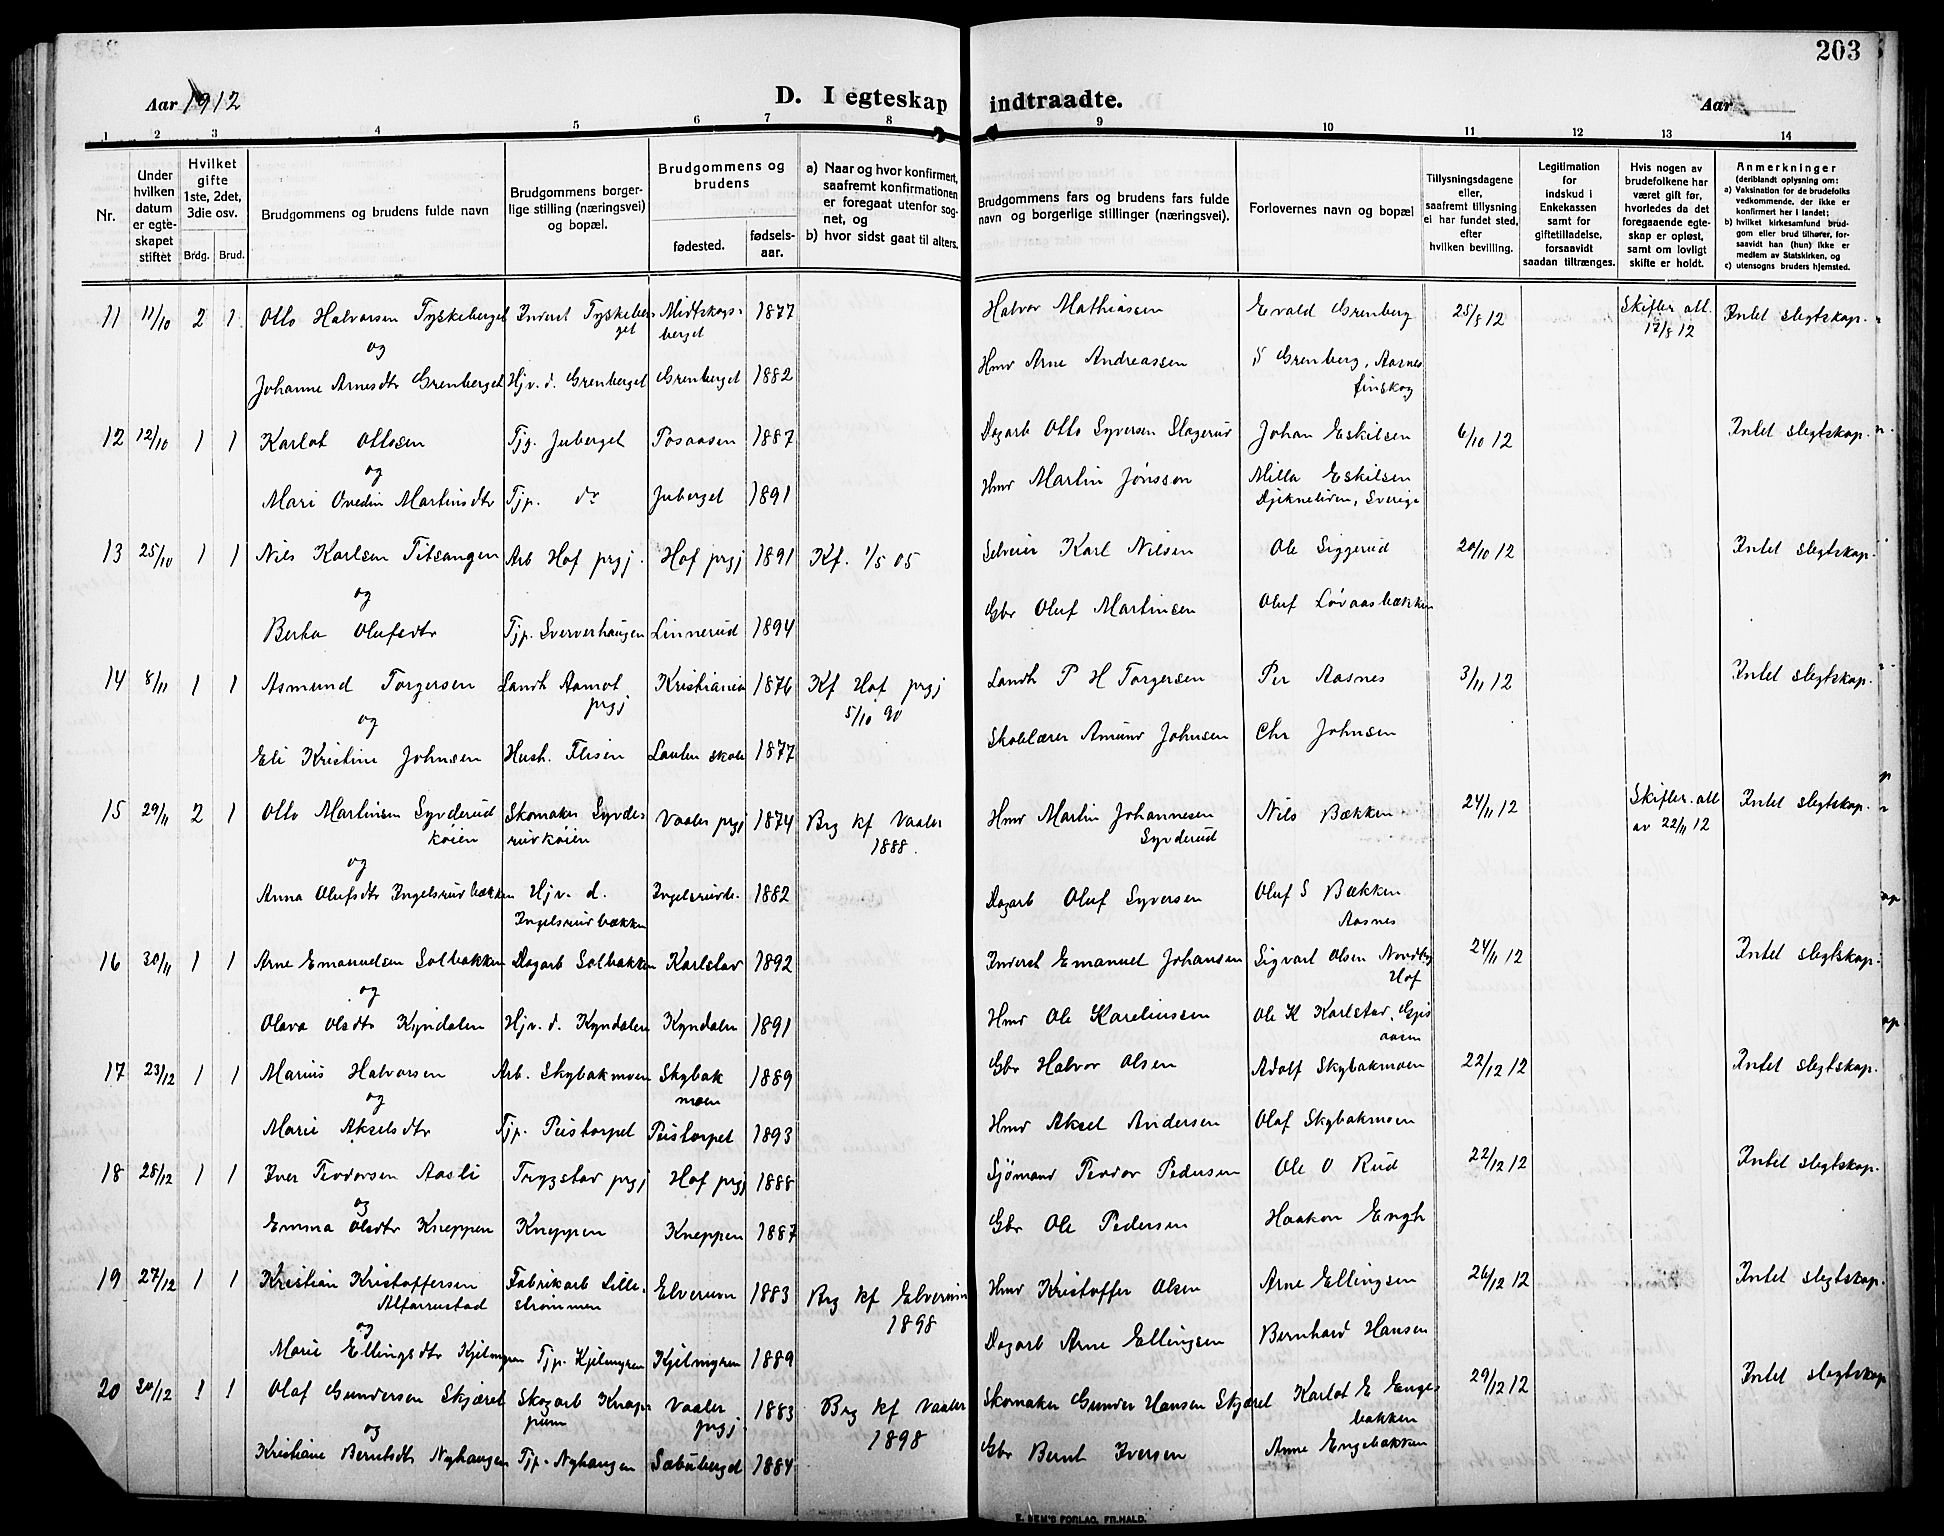 203
Aar 1912 D. I egteskap indtraadte. Aar
1 2 3 4 5 6 7 8 9 10 11 12 13 14
Nr.
Under hvilken datum er egteskapet stiftet
Hvilket gifte 1ste, 2det, 3die osv.
Brdg. Brud.
Brudgommens og brudens fulde navn
Brudgommens borgerlige stilling (næringsvei) og bopæl.
Brudgommens og brudens
fødested.
fødselsaar.
a) Naar og hvor konfirmert, saafremt konfirmationen er foregaat utenfor sognet, og
b) hvor sidst gaat til alters.
Brudgommens fars og brudens fars fulde navn og borgerlige stillinger (næringsvei).
Forlovernes navn og bopæl
Tillysningsdagene eller, saafremt tillysning ei har fundet sted, efter hvilken bevilling.
Legitimation for indskud i Enkekassen samt for giftetilladelse, forsaavidt saadan tiltrænges.
Hvis nogen av brudefolkene har været gift før, hvorledes da det foregaaende egteskap er opløst, samt om lovligt skifte er holdt.
Anmerkninger (deriblandt oplysning om:
a) Vaksination for de brudefolks vedkommende, der ikke er konfirmert her i landet;
b) hvilket kirkesamfund brudgom eller brud tilhører, forsaavidt han (hun) ikke er medlem av Statskirken, og
c) utensogns bruders hjemsted.
11 11/10 2 1 Otto Halvorsen Tyskeberget Inderst Tyskeberget Midtskogsberget 1877 Halvor Mathiassen Evald Grenberg 25/8 12 Skifteratt. 17/8 12 Intet slegtskap.
og
Johanne Arnesdtr Grenberget Hjv. d. Grenberget Grenberget 1882 Hmv Arne Andreassen Grenberg, Aasnes finskog
12 12/10 1 1 Karlot Ottosen Tjg. Juberget Posaasen 1887 Dagarb Otto Syversen Slagerud Johan Eskilsen 6/10 12 Intet slegtskap.
og
Mari Ovedin Martinsdtr Tjp. do Juberget 1891 Hmv Martin Jónsson Milla Eskilsen Djekneliden, Sverige
13 25/10 1 1 Nils Karlsen Titsangen Arb Hof prgj. Hof prgj 1891 Kf. 1/5 05 Selveier Karl Nilsen Ole Siggerud 20/10 12 Intet slegtskap.
og
Berta Olufsdtr Tjp. Sververhaugen Linnerud 1894 Gbr Oluf Martinsen Oluf Lövaasbækken
14 8/11 1 1 Asmund Torgersen Landh Aamot prgj Kristiania 1876 Kf Hof prgj 5/10 90 Landh P H Torgersen Per Aasnes 3/11 12 Intet slegtskap.
og
Eli Kristine Johnsen Hush. Flisen Lauten skole 1877 Skolelærer Amund Johnsen Chr Johnsen
15 29/11 2 1 Otto Martinsen Syvderudkøien Skomaker Syvderudkøien Vaaler prgj 1874 Brg kf Vaaler 1888. Hmv Martin Johannesen Syvderud Nils Bækken 24/11 12 Skifter.att av 22/11 12 Intet slegtskap.
og
Anna Olufsdtr Ingelsrudbækken Hjv. d. Ingelsrudbækken Ingelsrudb. 1882 Dagarb Oluf Syversen Oluf S Bækken Aasnes
16 30/11 1 1 Arne Emanuelsen Solbakken Dagarb Solbakken Karlstad 1892 Inderst Emanuel Johansen Sigvart Olsen Nordby Hof 24/11 12 Intet slegtskap.
og
Olava Olsdtr Kyndalen Hjv. d. Kyndalen Kyndalen 1891 Hmv Ole Karelinssen Ole K Karlstad, Gjesaasen
17 23/12 1 1 Marius Halvorsen Arb. Skybakmoen Skybakmoen 1889 Gbr Halvor Olsen Adolf Skybakmoen 22/12 12 Intet slegtskap.
og
Marie Akselsdtr Tjp. Peistorpet Peistorpet 1893 Hmv Aksel Andersen Olaf Skybakmoen
18 28/12 1 1 Iver Teodorsen Aasli Trygstad prgj Hof prgj 1888 Sjømand Teodor Pedersen Ole O Rud 22/12 12 Intet slegtskap.
og
Emma Olsdtr Kneppen Kneppen Kneppen 1887 Gbr Ole Pedersen Haakon Engh
19 27/12 1 1 Kristian Kristoffersen Alfarrustad Fabrikarb Lillestrømmen Elverum 1883 Brg kf Elverum 1898 Hmv Kristoffer Olsen Arne Ellingsen 26/12 12 Intet slegtskap.
og
Marie Ellingsdtr Kjelmyren Tjp. Kjelmyren Kjelmyren 1889 Dagarb Arne Ellingsen Bernhard Hansen
20 30/12 1 1 Olaf Gundersen Skjæret Skogarb Knappum Vaaler prgj. 1883 Brg kf Vaaler 1898 Skomaker Gunder Hansen Skjæret Karlot E Engebakken 29/12 12 Intet slegtskap
og
Kristiane Berntsdtr Nyhaugen Tjp. Nyhaugen Sæbuberget 1884 Gbr Bernt Iversen Anne Engebakken
E. SEM'S FORLAG, FR.HALD.